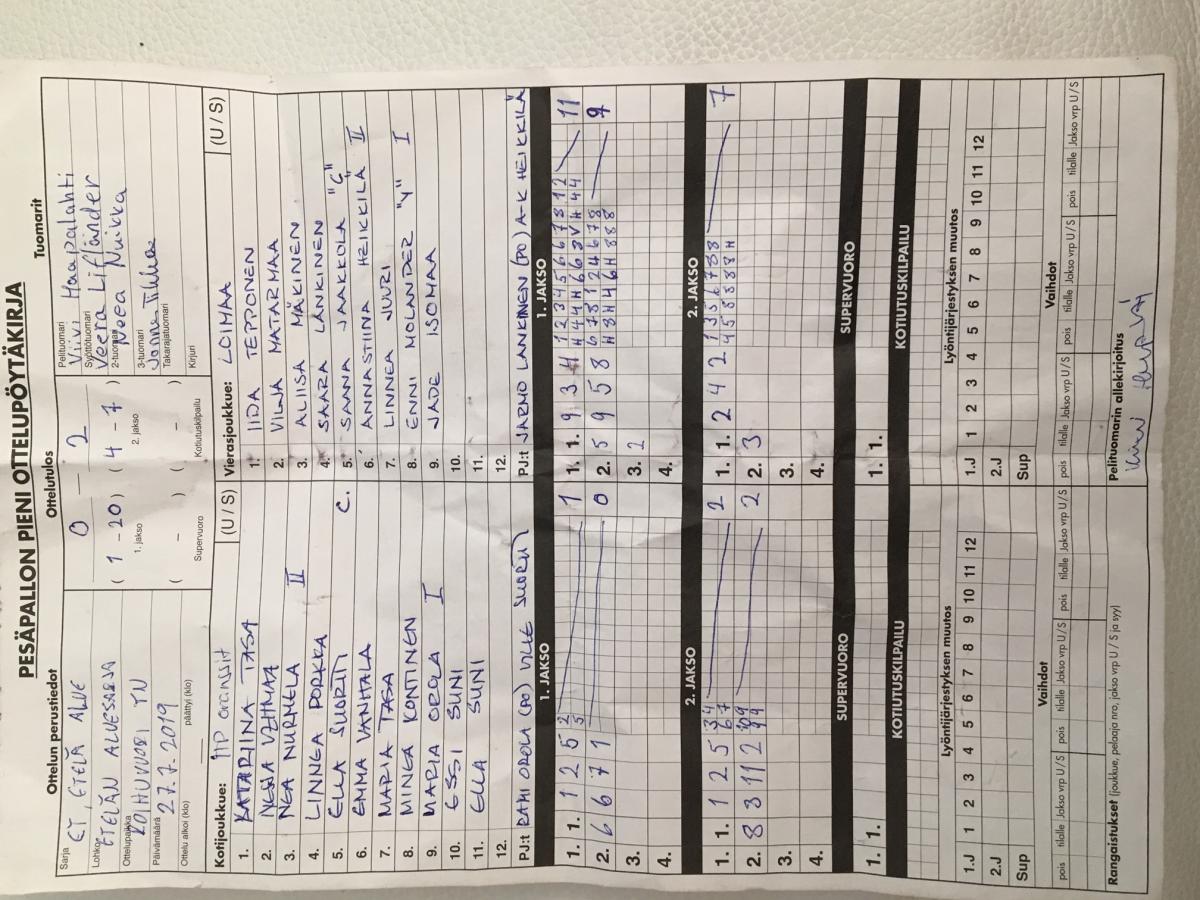 PESÄPALLON PIENI OTTELUPÖYTÄKIRJA
Ottelun perustiedot
Sarja
ET, ETELÄ ALUE
Lohko
ETELÄN ALUESARJA
Ottelupaikka
ROIHUVUORI TN
Päivämäärä
27.7.2019
Ottelu alkoi (klo) päättyi (klo)
Ottelutulos
0 – 2
( 1 - 20 ) ( 4 - 7 )
1. jakso 2. jakso
( – ) ( – )
Supervuoro Kotiutuskilpailu
Tuomarit
Pelituomari
Viivi Haapalahti
Syöttötuomari
Veera Lifländer
2-tuomari
Noea Nuikka
3-tuomari
Takarajatuomari
Kirjuri
Kotijoukkue: HP oranssit (U / S)
1. KATARIINA TASA
2.
3. NEA NURMELA II
4. LINNEA PORKKA
5. ELLA SUORTTI C.
6. EMMA VANHALA
7. MARIA TASA
8. MINEA KONTINEN
9. MARIA OROLA I
10. ESSI SUNI
11. ELLA SUNI
12.
PJ:t RAMI OROLA (PO) VILLE SUORTTI
Vierasjoukkue: LOIMAA (U / S)
1. IIDA TEPPONEN
2. VILJA MATARMAA
3. ALIISA MÄKINEN
4. SAARA LANKINEN
5. SANNA JAAKKOLA "C"
6. ANNASTIINA HEIKKILÄ II
7. LINNEA JUURI
8. ENNI MOLANDER "V" I
9. JADE ISOMAA
10.
11.
12.
PJ:t JARMO LANKINEN (PO) A-K HEIKKILÄ
1. JAKSO
1. 1. 1 2 5 2 3 1
2. 6 6 7 1 0
3.
4.
1. JAKSO
1. 1. 9 3 4 11
2. 5 9 5 8 9
3. 2
4.
2. JAKSO
1. 1. 1 2 5 3 4 6 7 2
2. 8 3 11 2 2
3.
4.
2. JAKSO
1. 1. 2 4 2 7
2. 3
3.
4.
SUPERVUORO
1. 1.
SUPERVUORO
1. 1.
KOTIUTUSKILPAILU
KOTIUTUSKILPAILU
Lyöntijärjestyksen muutos
1.J 1 2 3 4 5 6 7 8 9 10 11 12
2.J
Sup
Lyöntijärjestyksen muutos
1.J 1 2 3 4 5 6 7 8 9 10 11 12
2.J
Sup
Vaihdot
pois tilalle Jakso vrp U / S pois tilalle Jakso vrp U / S pois tilalle Jakso vrp U / S
Vaihdot
pois tilalle Jakso vrp U / S pois tilalle Jakso vrp U / S pois tilalle Jakso vrp U / S
Rangaistukset (joukkue, pelaaja nro, jakso vrp U / S ja syy)
Pelituomarin allekirjoitus